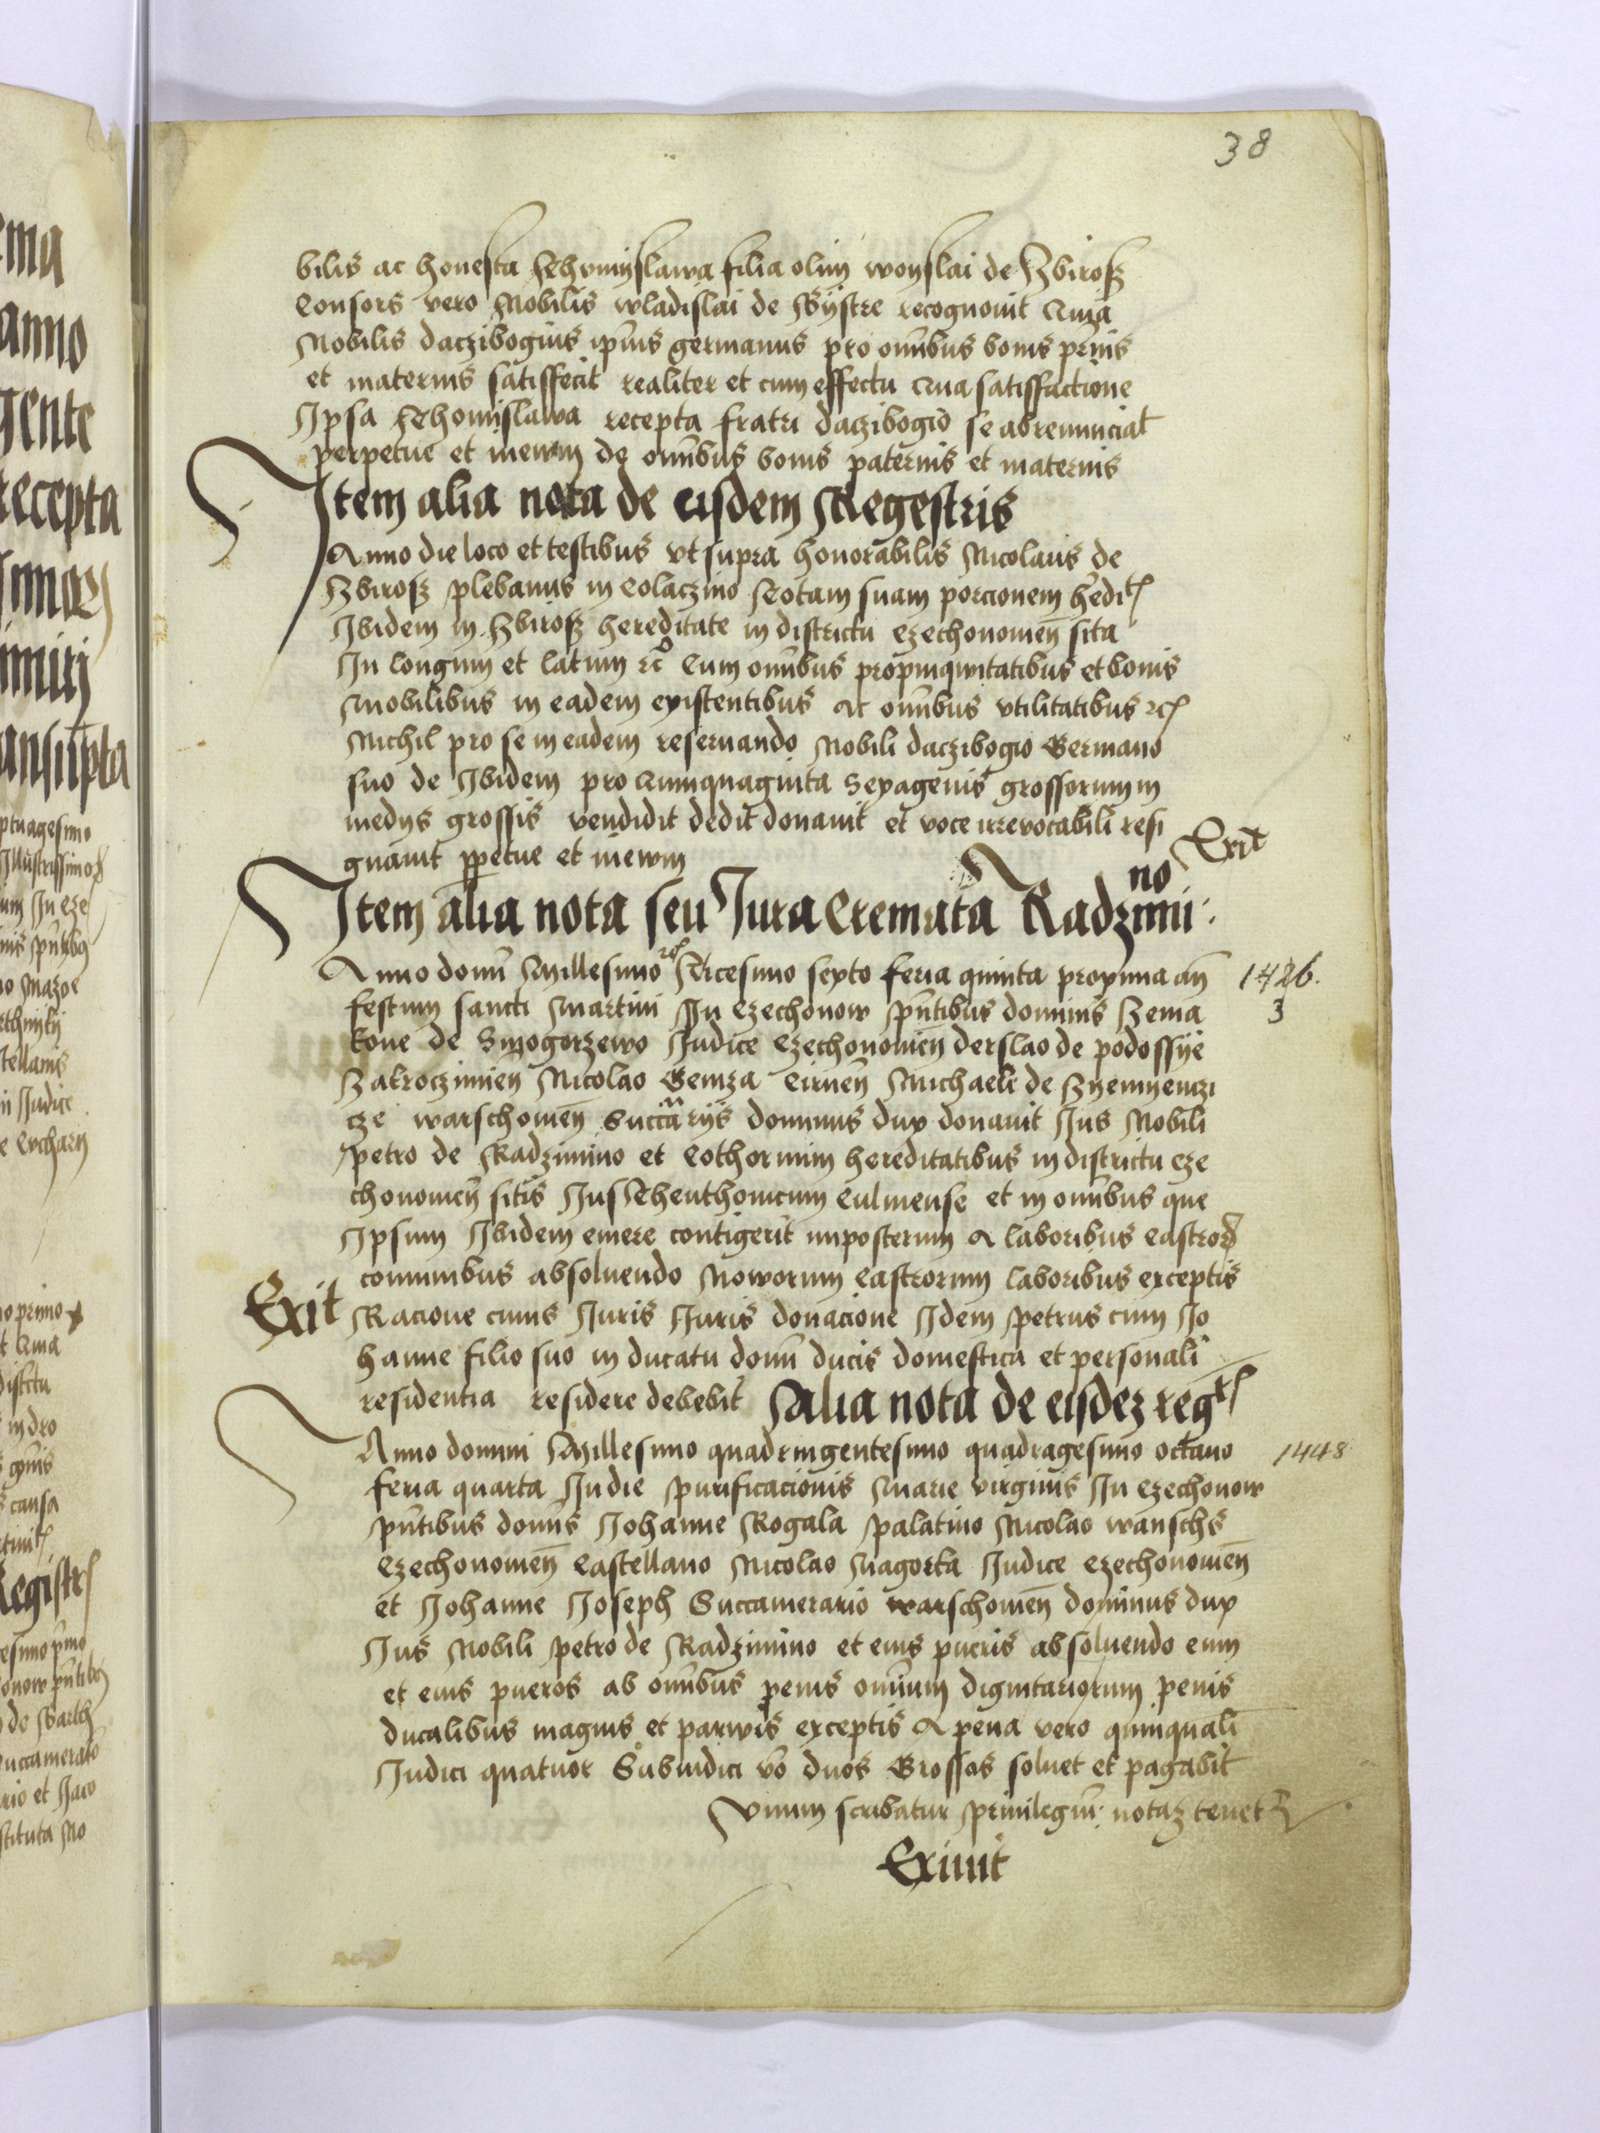 38
bilis ac honesta Thomyslawa filia olim woyslai de Zbirosz
Consors vero Nobilis wladislai de Bystre recognovit Quia
Nobilis daczibogius ipius germanus pro omibus bonis prnis
et maternis satisffecit realiter et cum effectu Qua satisffactione
Ipsa Thomislawa recepta fratri daczibogio se abrenunciat
perpetue et inewm de omibus bonis paternis et maternis
Item alia nota de eisdem Regestris
Anno die loco et testibus vt supra honorabilis Nicolaus de
Zbirosz plebanus in Colaczino Totam suam porcionem hedit
Ibidem in Zbirosz hereditate in districtu Czechonomen sita
In longum et latum rc Cum omibus propinquitatibus et bonis
Mobilibus in eadem existentibus Ac omibus vtilitatibus rc
Nichil pro se in eadem reseruando Nobili daczibogio Germano
suo de Ibidem pro Quinquaginta Sexagenis grossorum in
medys grossis vendidit dedit donauit et voce irrevocabili resi
gnauit ppetue et inewm
Exit
Item alia nota seu Jura Cremata Radzimi no
Anno domi Millesimo rc Vicesimo sexto feria quinta proxima an
1426.
festum sancti Martini In Czechonow pntibus dominis Zema
3
kone de Smogorzewo Judice Czechonomen derslao de podossye
Zakroczimien Nicolao Gemza Cirnen Michaele de Nyemyenczi
cze warschomen Succarijs dominus dux donauit Jus Nobili
petro de Radzimino et Cothormim hereditatibus in districtu Cze
chonomen sitis Jus Theuthonicum Culmense et in omibus que
Ipsum Ibidem emere contigerit imposterum A laboribus Castror
comunibus absoluendo Noworum Castrorum laboribus exceptis
Exit
Racione cuius Juris Juris donacione Idem petrus cum Jo
hanne filio suo in ducatu domi ducis domestica et personali
residentia residere debebit Alia nota de eisdez regr
Anno domini Millesimo quadringentesimo quadragesimo octauo
1448
feria quarta In die purificacionis Marie virginis In Czechonow
pntibus domis Johanne Rogala palatino Nicolao wansch
Czechonomen Castellano Nicolao Magorka Judice Czechonomen
et Johanne Joseph Succamerario warschomen dominus dux
Jus Nobili petro de Radzimino et eius pueris absoluendo eum
et eius pueros ab omibus penis omium dignitariorum penis
ducalibus magnis et parwis exceptis A pena vero quinquali
Judici quatuor Subiudici vo duos Grossos soluet et pagabit
Vnum scribatur priuilegiu notaz tenet
Exiuit